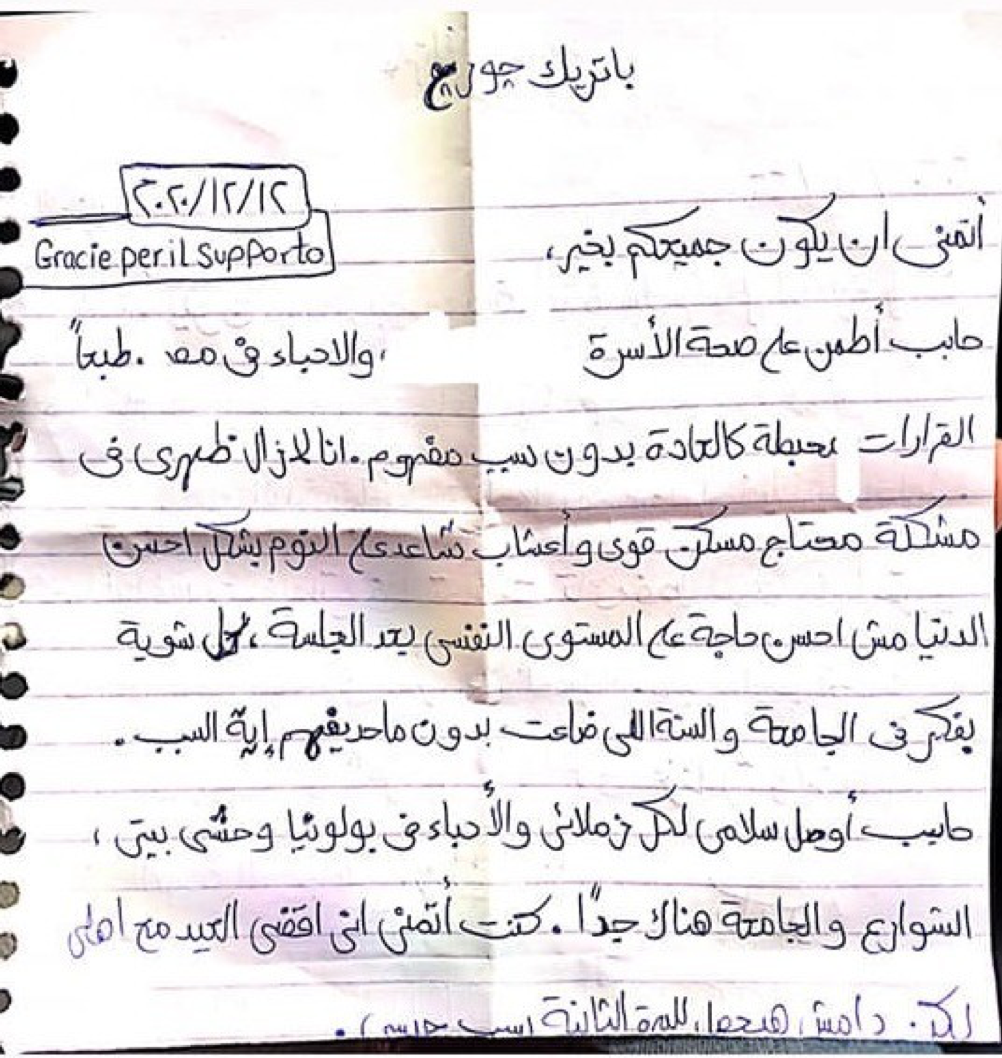 باتريك چورچ
٢٠٢٠/١٢/١٢
Gracie per il supporto
أتمنى ان يكون جميعكم بخير،
حابب أطمن على صحة الأسرة ، والاحباء فى مصر . طبعاً
القرارات محبطة كالعادة بدون سبب مفهوم . انا لازال ظهرى فى
مشكلة محتاج مسكن قوى وأعشاب تساعدى على النوم بشكل احسن
الدنيا مش احسن حاجة على المستوى النفسى بعد الجلسة ، كل شوية
بفكر فى الجامعة والسنة اللى ضاعت بدون ماحد يفهم إية السبب .
حابب أوصل سلامى لكل زملائى والأحباء فى بولونيا وحشى بيتى ،
الشوارع والجامعة هناك جداً . كنت أتمنى انى اقضى العيد مع اهلى
لكن دا مش هيحصل للمرة الثانية بسبب حبسى .